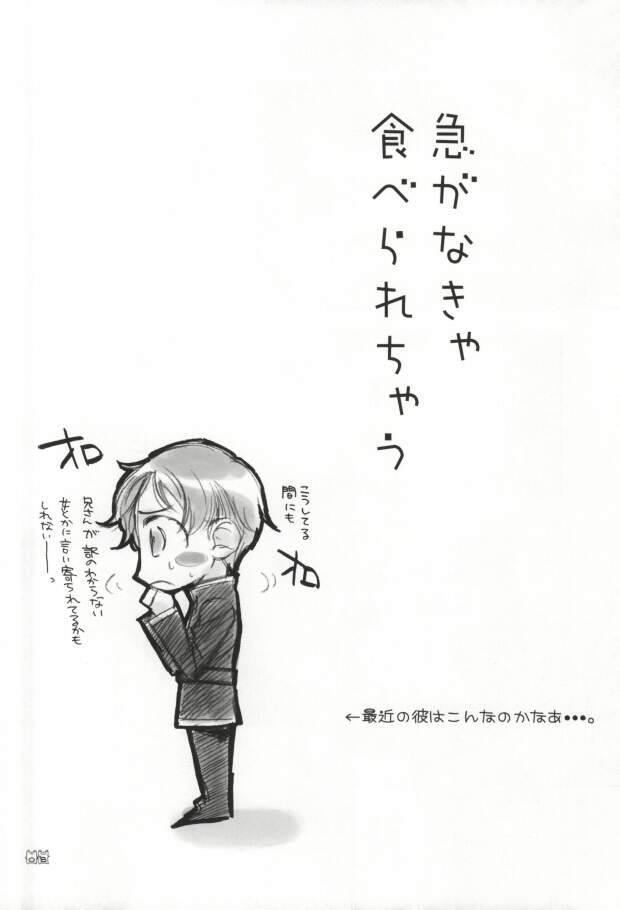 急がなきゃ
食べられちゃう
オロ
オロ
こうしてる
間にも
兄さんが訳のわからない
女とかに言い寄られてるかも
しれない――っ
←最近の彼はこんなのかなあ・・・。